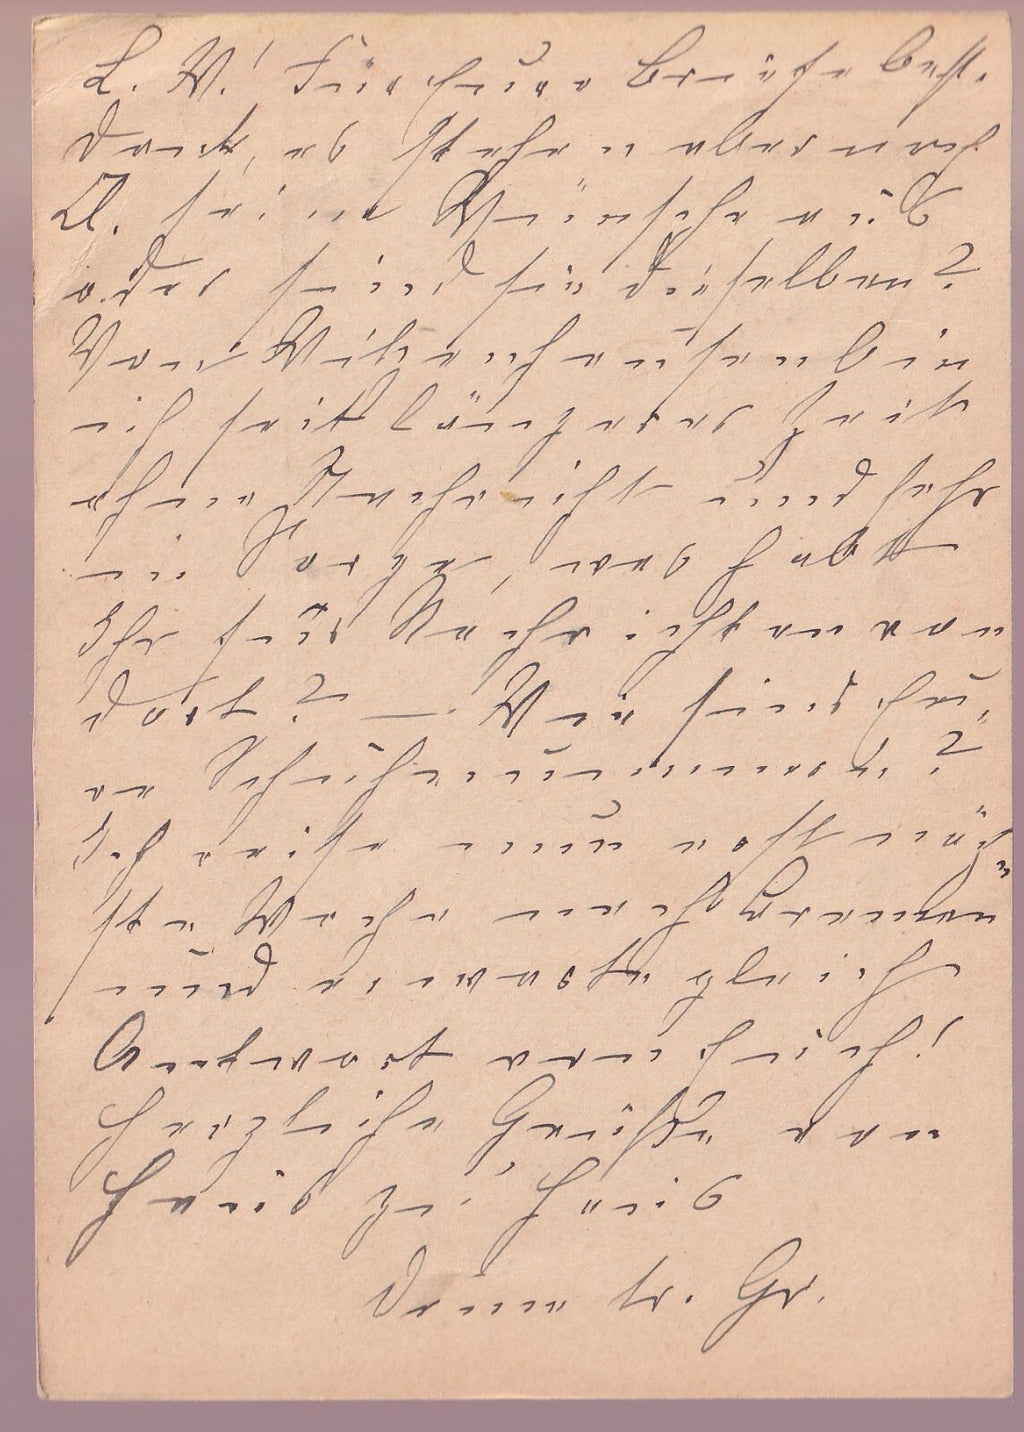 L. W.! Für Eure Briefe best.
Dank, es stehen aber noch
A. seine Wünsche aus
oder sind sie dieselben?
Von Witzenhausen bin
ich seit längerer Zeit
ohne Nachricht und sehr
in Sorge, was habt
Ihr für Nachrichten von
dort? — Wie sind Eu-
re Schuhnummern?
Ich reise nun erst näch-
ste Woche nach Bremen
und erwarte gleich
Antwort von Euch!
Herzliche Grüße von
Haus zu Haus
Deine tr. Gr.